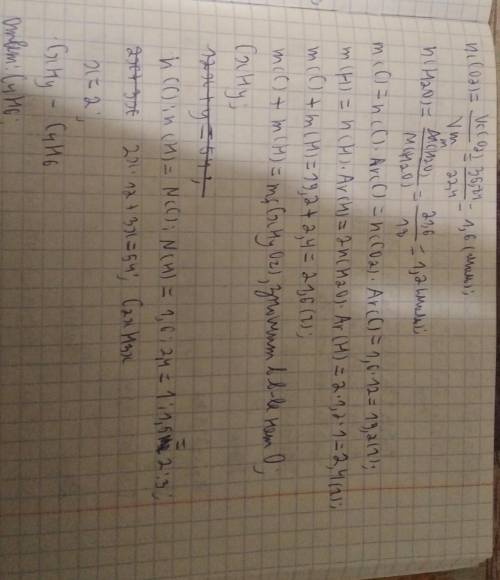 n(CO2) = V(CO2)/Vm = 35,84/22,4 = 1,6 (моль);
n(H2O) = m(H2O)/M(H2O) = 21,6/18 = 1,2 (моль);
m(C) = n(C) · Ar(C) = n(CO2) · Ar(C) = 1,6 · 12 = 19,2 (г);
m(H) = n(H) · Ar(H) = 2n(H2O) · Ar(H) = 2 · 1,2 · 1 = 2,4 (г);
m(C) + m(H) = 19,2 + 2,4 = 21,6 (г);
m(C) + m(H) = m(CxHyOz), значит в в-ве нет O;
CxHy,
12x + y = 54;
n(C) : n(H) = N(C) : N(H) = 1,6 : 2,4 = 1 : 1,5 = 2 : 3;
2x + 3x 2x · 12 + 3x = 54; C2xH3x
x = 2;
CxHy - C4H6
Ответ: C4H6;